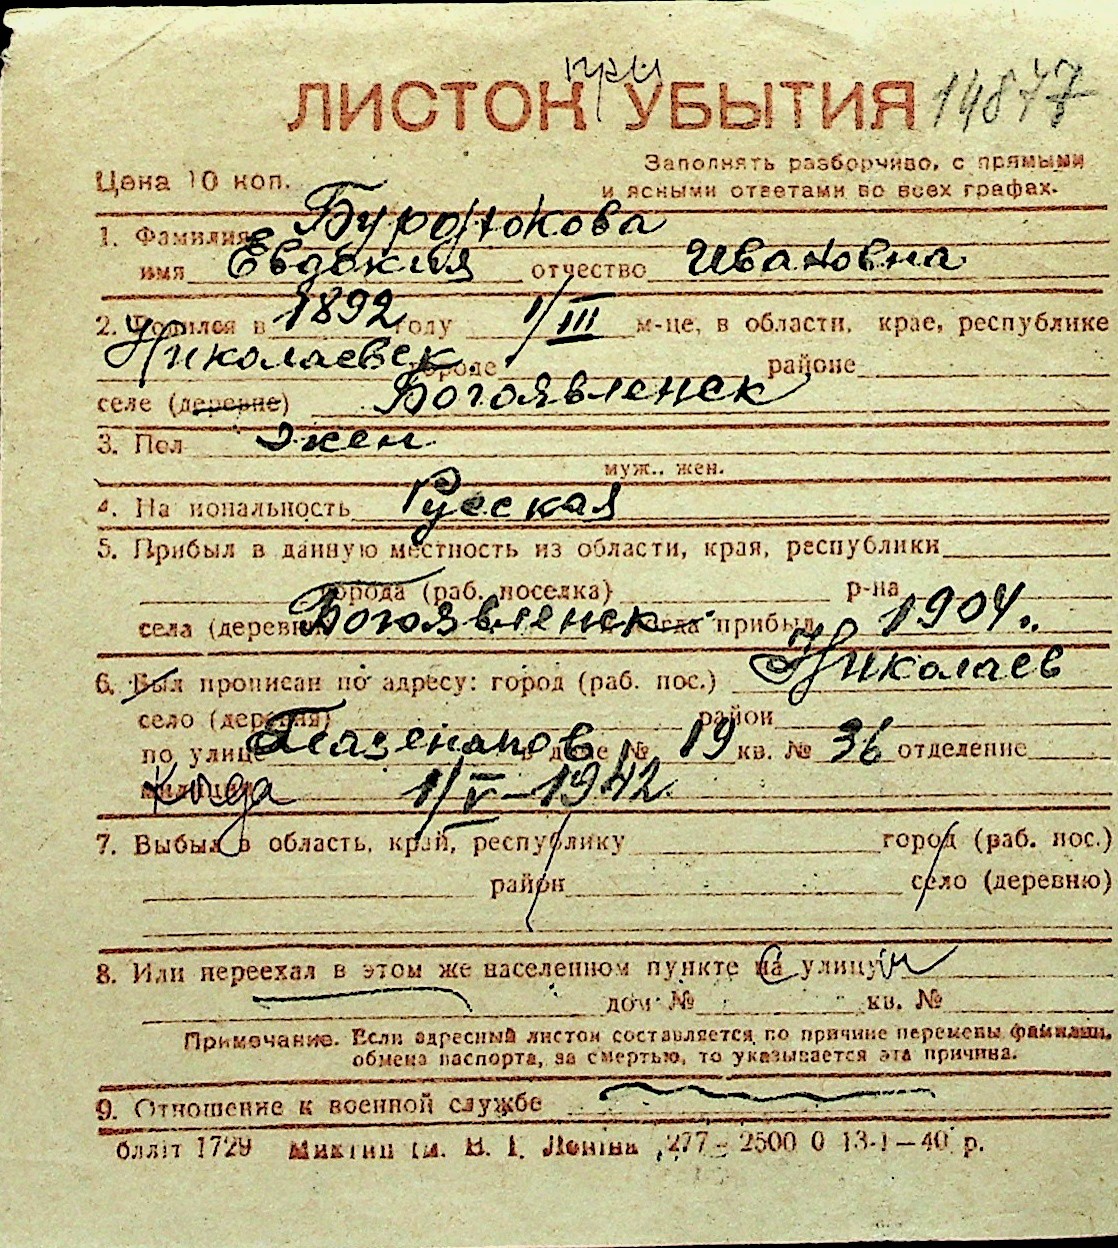 при
ЛИСТОК УБЫТИЯ 14877
Цена 10 коп.
Заполнять разборчиво, с прямыми
и ясными ответами во всех графах.
1. Фамилия
имя Евдокия отчество Ивановна
2. Родился в 1892 году 1/III м-це, в области, крае, республике
Николаевск. городе районе
селе (деревне) Богоявленск
3. Пол жен
муж., жен.
4. Национальность Русская
5. Прибыл в данную местность из области, края, республики
города (раб. поселка) р-на
села (деревни) Богоявленск когда прибыл 1904 г.
6. Был прописан по адресу: город (раб. пос.) Николаев
село (деревня) район
по улице в доме № 19 кв. № 36 отделение
милиции когда 1/V-1942
7. Выбыл в область, край, республику город (раб. пос.)
район село (деревню)
8. Или переехал в этом же населенном пункте на улицу
дом № кв. №
Примечание. Если адресный листок составляется по причине перемены фамилии,
обмена паспорта, за смертью, то указывается эта причина.
9. Отношение к военной службе
1729 ім. В. І. Леніна 277 – 2500 0 13-I–40 р.